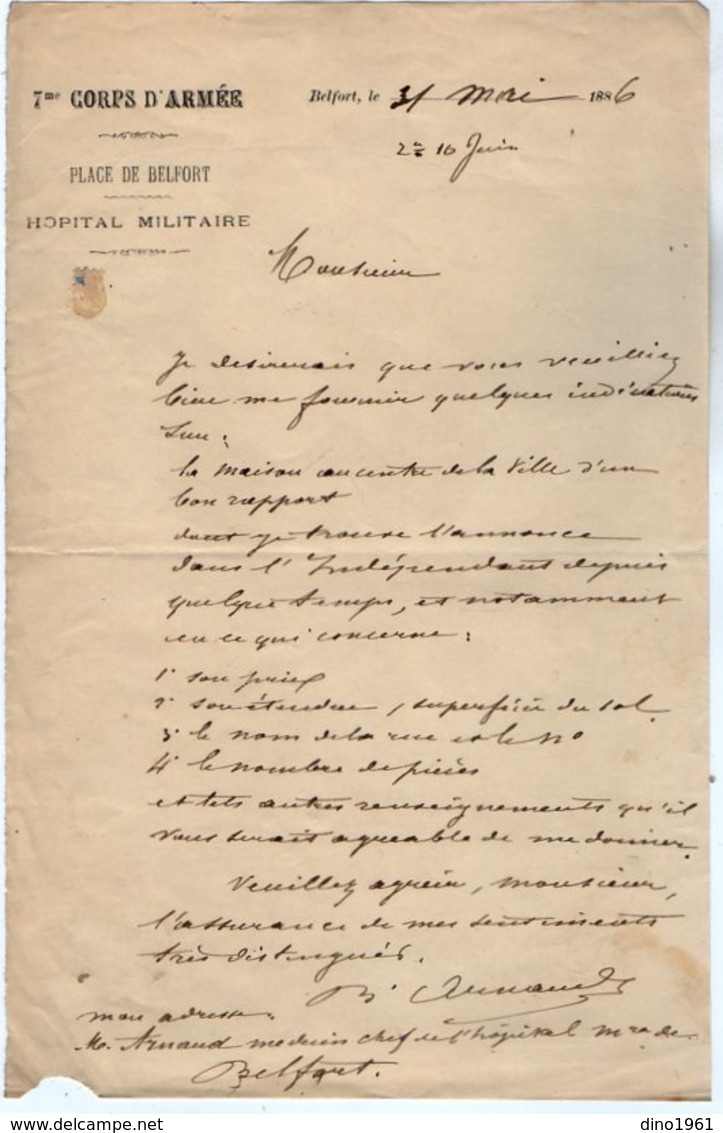 7me CORPS D'ARMÉE
Belfort, le 31 Mai 1886
10 Juin
PLACE DE BELFORT
HOPITAL MILITAIRE
Monsieur
Je desirerais que vous veuilliez
bien me fournir quelques indications
sur :
la maison au centre de la Ville d'un
bon rapport
dont je trouve l'annonce
dans l'Indépendant depuis
quelque temps, et notamment
en ce qui concerne :
1° son prix
2° son étendue, superficie du sol.
3° le nom de la rue et le N°
4° le nombre de pièces
et tels autres renseignements qu'il
vous serait agreable de me donner.
Veuillez agréer, monsieur,
l'assurance de mes sentiments
très distingués.
Arnaud
mon adresse.
M. Arnaud medecin chef de l'hôpital mre de
Belfort.
dino1961